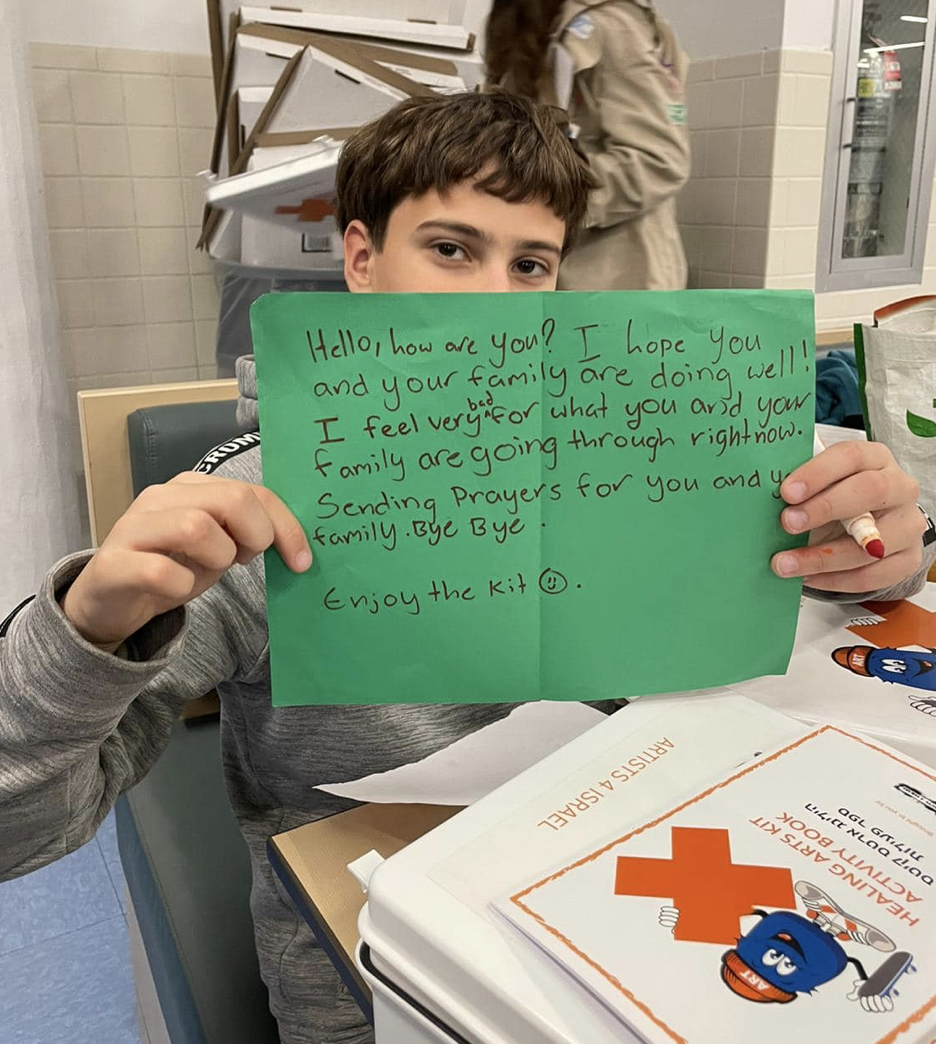 Hello, how are you? I hope you
and your family are doing well!
I feel very bad for what you and your
family are going through right now.
Sending Prayers for you and
family. Bye Bye.
Enjoy the Kit ☺.
CRUM
ARTISTS 4 ISRAEL
HEALING ARTS KIT
ACTIVITY BOOK
הילינג ארטס קיטס
ספר פעילות
brought to you by
ART
ART